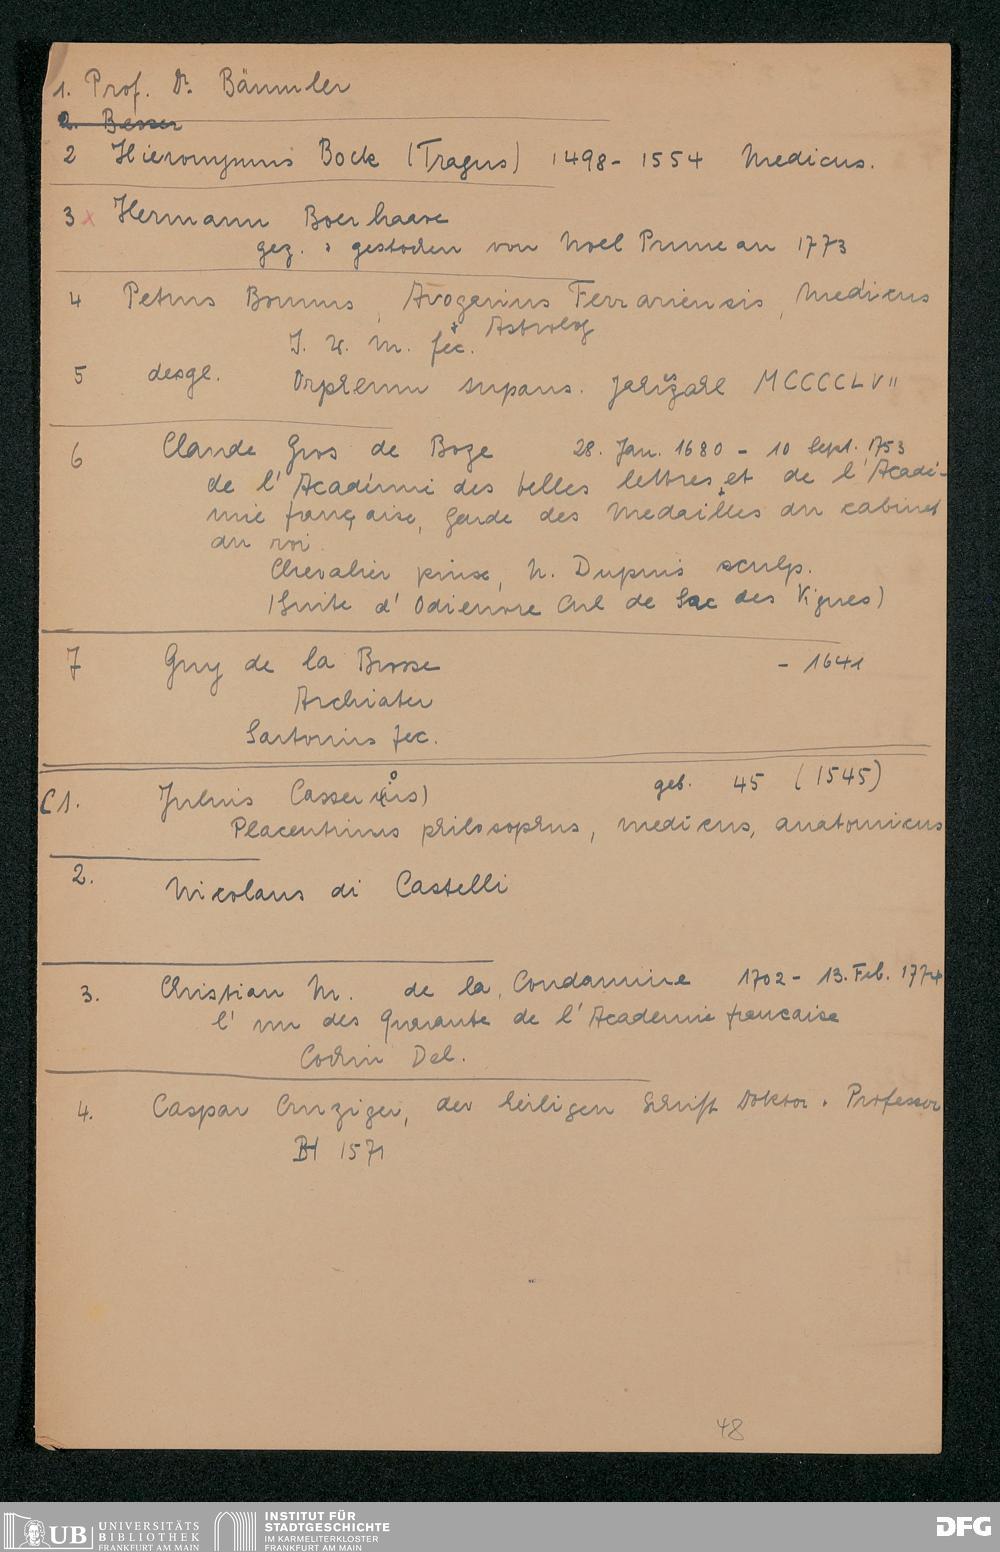 1. Prof. Dr. Bäumler
2. Besser
2 Hieronymus Bock (Tragus) 1498 - 1554 Medicus.
3 x Hermann Boerhaave
gez. & gestochen von Noel Pruneau 1773
4 Petrus Bonnus, Avogarius Ferrariensis, Medicus
+ Astrolog
J. H. M. fec.
5 desgl. Orpheum supans. Jahrzahl MCCCCLVII
6 Claude Gros de Boze 28. Jan. 1680 - 10 Sept. 1753
de l'Académi des belles lettres et de l'Acadé-
mie française, Garde des Medailles du cabinet
du roi.
Chevalier pinx, N. Dupuis sculp.
(Suite d'Odieuvre Cul de Sac des Vignes)
7 Guy de la Brosse - 1641
Archiater
Sartorius fec.
C 1. Julius Casser(ius) geb. 45 (1545)
Placentinus philosophus, medicus, anatomicus
2. Nicolaus di Castelli
3. Christian M. de la Condamine 1702 - 13. Feb. 1774
l'un des Quarante de l'Academie francaise
Cochin Del.
4. Caspar Cruziger, der heiligen Schrift Doktor & Professor
BH 1571
48
UB UNIVERSITÄTS
BIBLIOTHEK
FRANKFURT AM MAIN
INSTITUT FÜR
STADTGESCHICHTE
IM KARMELITERKLOSTER
FRANKFURT AM MAIN
DFG